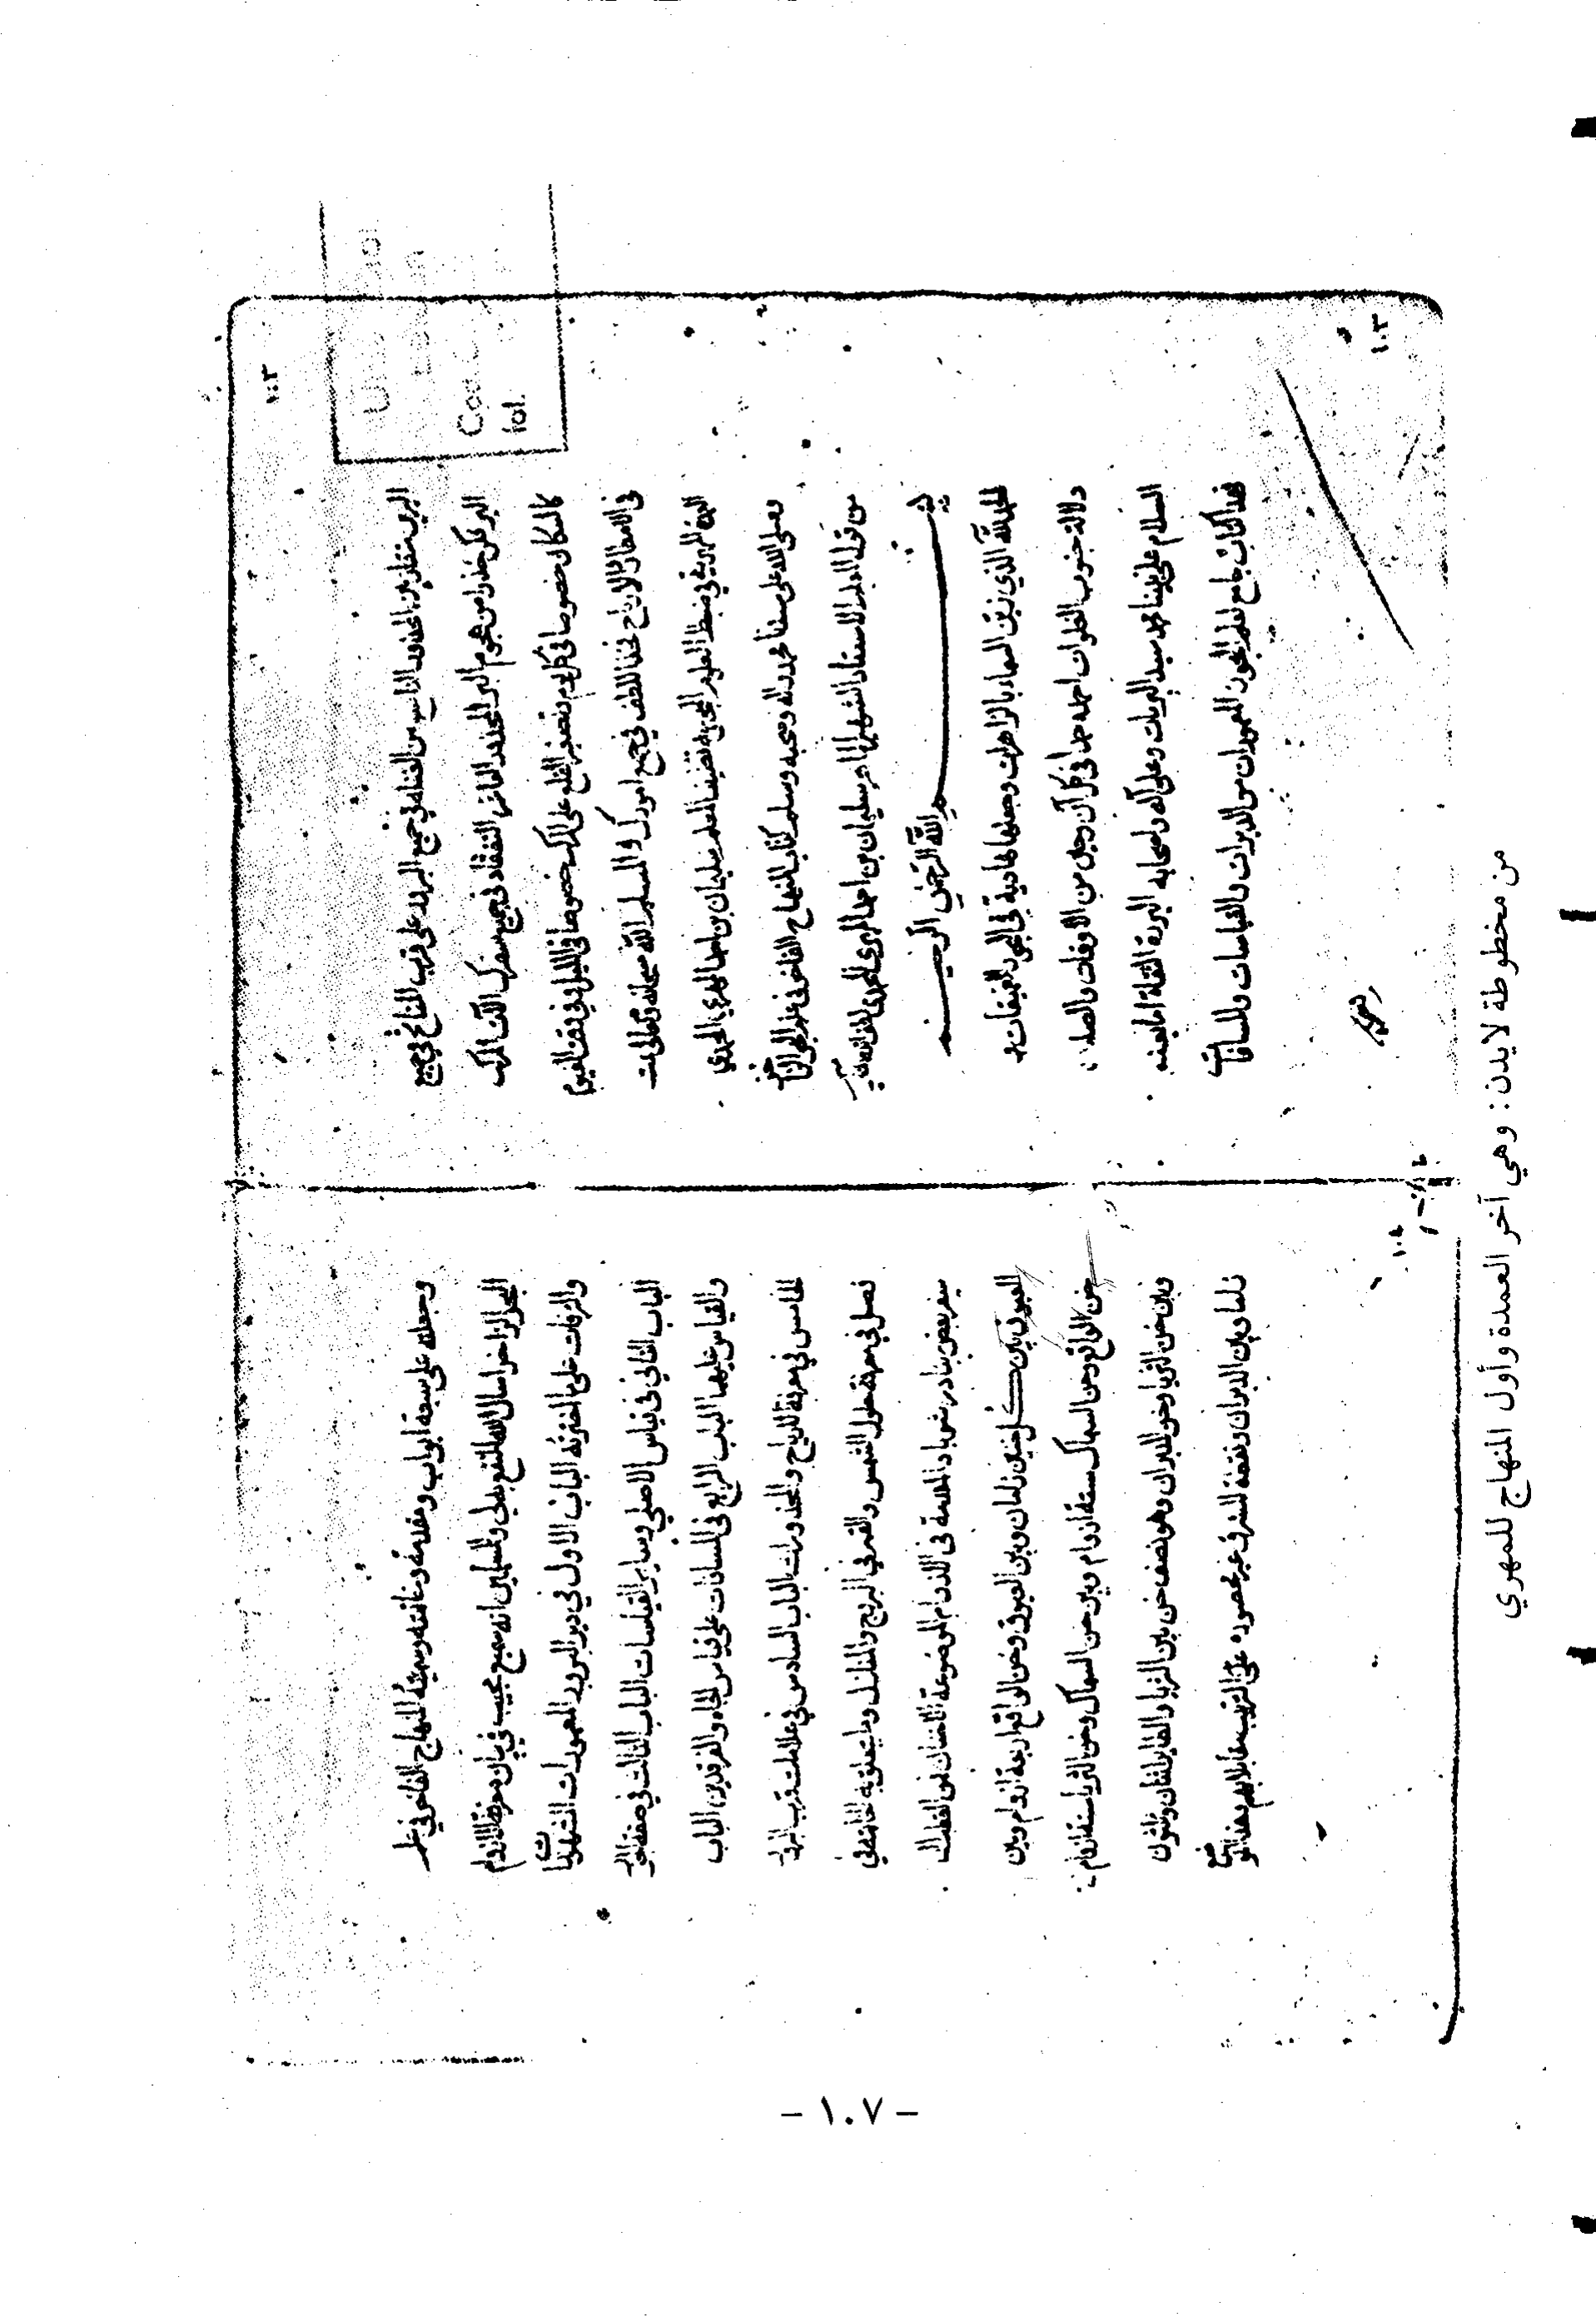 ١٠٣
البرين متقاربين المحذور التاسع من الغفله في جميع البرور على قرب المناتخ في جميع
البر وكن حذرا من نجوم البر المحذور العاشر التفقاد في جميع سفرك آلات المركب
كالسكان خصوصا في كل يوم وتصغير القلع على المركب خصوصا في الليل وفي وقت الغيوم
في الامطار والارياح فخذ اللطف في جميع امورك والمسلم الله سبحانه وتعالى تمت
العمدة المهرية في ضبط العلوم البحرية تصنيف المعلم سليمان بن احمد المهري المحمدي
وصلى الله على سيدنا محمد واله وصحبه وسلم كتاب المنهاج الفاخر في علم البحر الزاخر
من قول المعلم الاستاد الشهير الماهر سليمان بن احمد المهري المحمدي
بسم الله الرحمن الرحيم
الحمد لله الذي زين السماء بالزاهرات وجعلها هادية في البحر
دلالة جنوب الفلوات احمده حمدا في كل آن وحين من الاوقات والصلاة
السلام على نبينا محمد سيد البريات وعلى آله واصحابه البررة الثقاة اما بعد
فهذا كتاب جامع لعلم البحور المعمورات من الديرات والقياسات والمسافات
١٠٣
وجعلته على سبعة ابواب ومقدمة وخاتمة وسميته المنهاج الفاخر في علم
البحر الزاخر اسال الله النفع به لي والمسلمين انه سميع مجيب في بيان معرفة الازوام
والترفات على ما اخترته الباب الاول في دير البرور المعمورات المشهورات
الباب الثاني في قياس الاصلي وساير القياسات الباب الثالث في صفة الجزر
والقياس عليها الباب الرابع في المسافات على قياس الجاه والفرقدين الباب
الخامس في معرفة الارياح والمحذورات الباب السادس في علامات قرب البرور
فصل في معرفة حلول الشمس والقمر في البروج والمنازل وما يتعلق به الخاتمة في
سفر بعض بنادر مشهورات المقدمة في الازوام الموضوعة للاخنان من القطب الى
العيوق بين كل خنين زامان وبين العيوق وخن الواقع اربعة ازوام وبين
خن الواقع وخن السماك ستة ازوام وبين خن السماك وخن الثريا ستة ازوام
وبين خن الثريا وخن الدبران وهو نصف خن بين الثريا والطاير اثنان وثلثون
زاما وبين الدبران ونقطة المشرق غير محصورة على الترتيب
١٠٤
من مخطوطة لايدن : وهي آخر العمدة وأول المنهاج للمهري
- ١٠٧ -